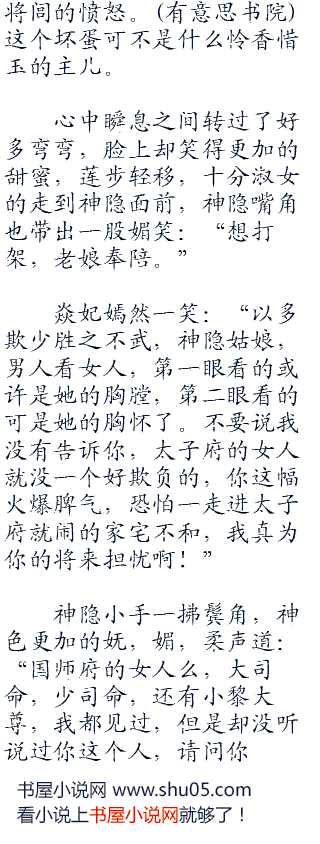 将间的愤怒。(有意思书院)
这个坏蛋可不是什么怜香惜
玉的主儿。
心中瞬息之间转过了好
多弯弯，脸上却笑得更加的
甜蜜，莲步轻移，十分淑女
的走到神隐面前，神隐嘴角
也带出一股媚笑：“想打
架，老娘奉陪。”
焱妃嫣然一笑：“以多
欺少胜之不武，神隐姑娘，
男人看女人，第一眼看的或
许是她的胸膛，第二眼看的
可是她的胸怀了。不要说我
没有告诉你，太子府的女人
就没一个好欺负的，你这幅
火爆脾气，恐怕一走进太子
府就闹的家宅不和，我真为
你的将来担忧啊！”
神隐小手一拂鬓角，神
色更加的妩，媚，柔声道：
“国师府的女人么，大司
命，少司命，还有小黎大
尊，我都见过，但是却没听
说过你这个人，请问你
书屋小说网 www.shu05.com
看小说上书屋小说网就够了！